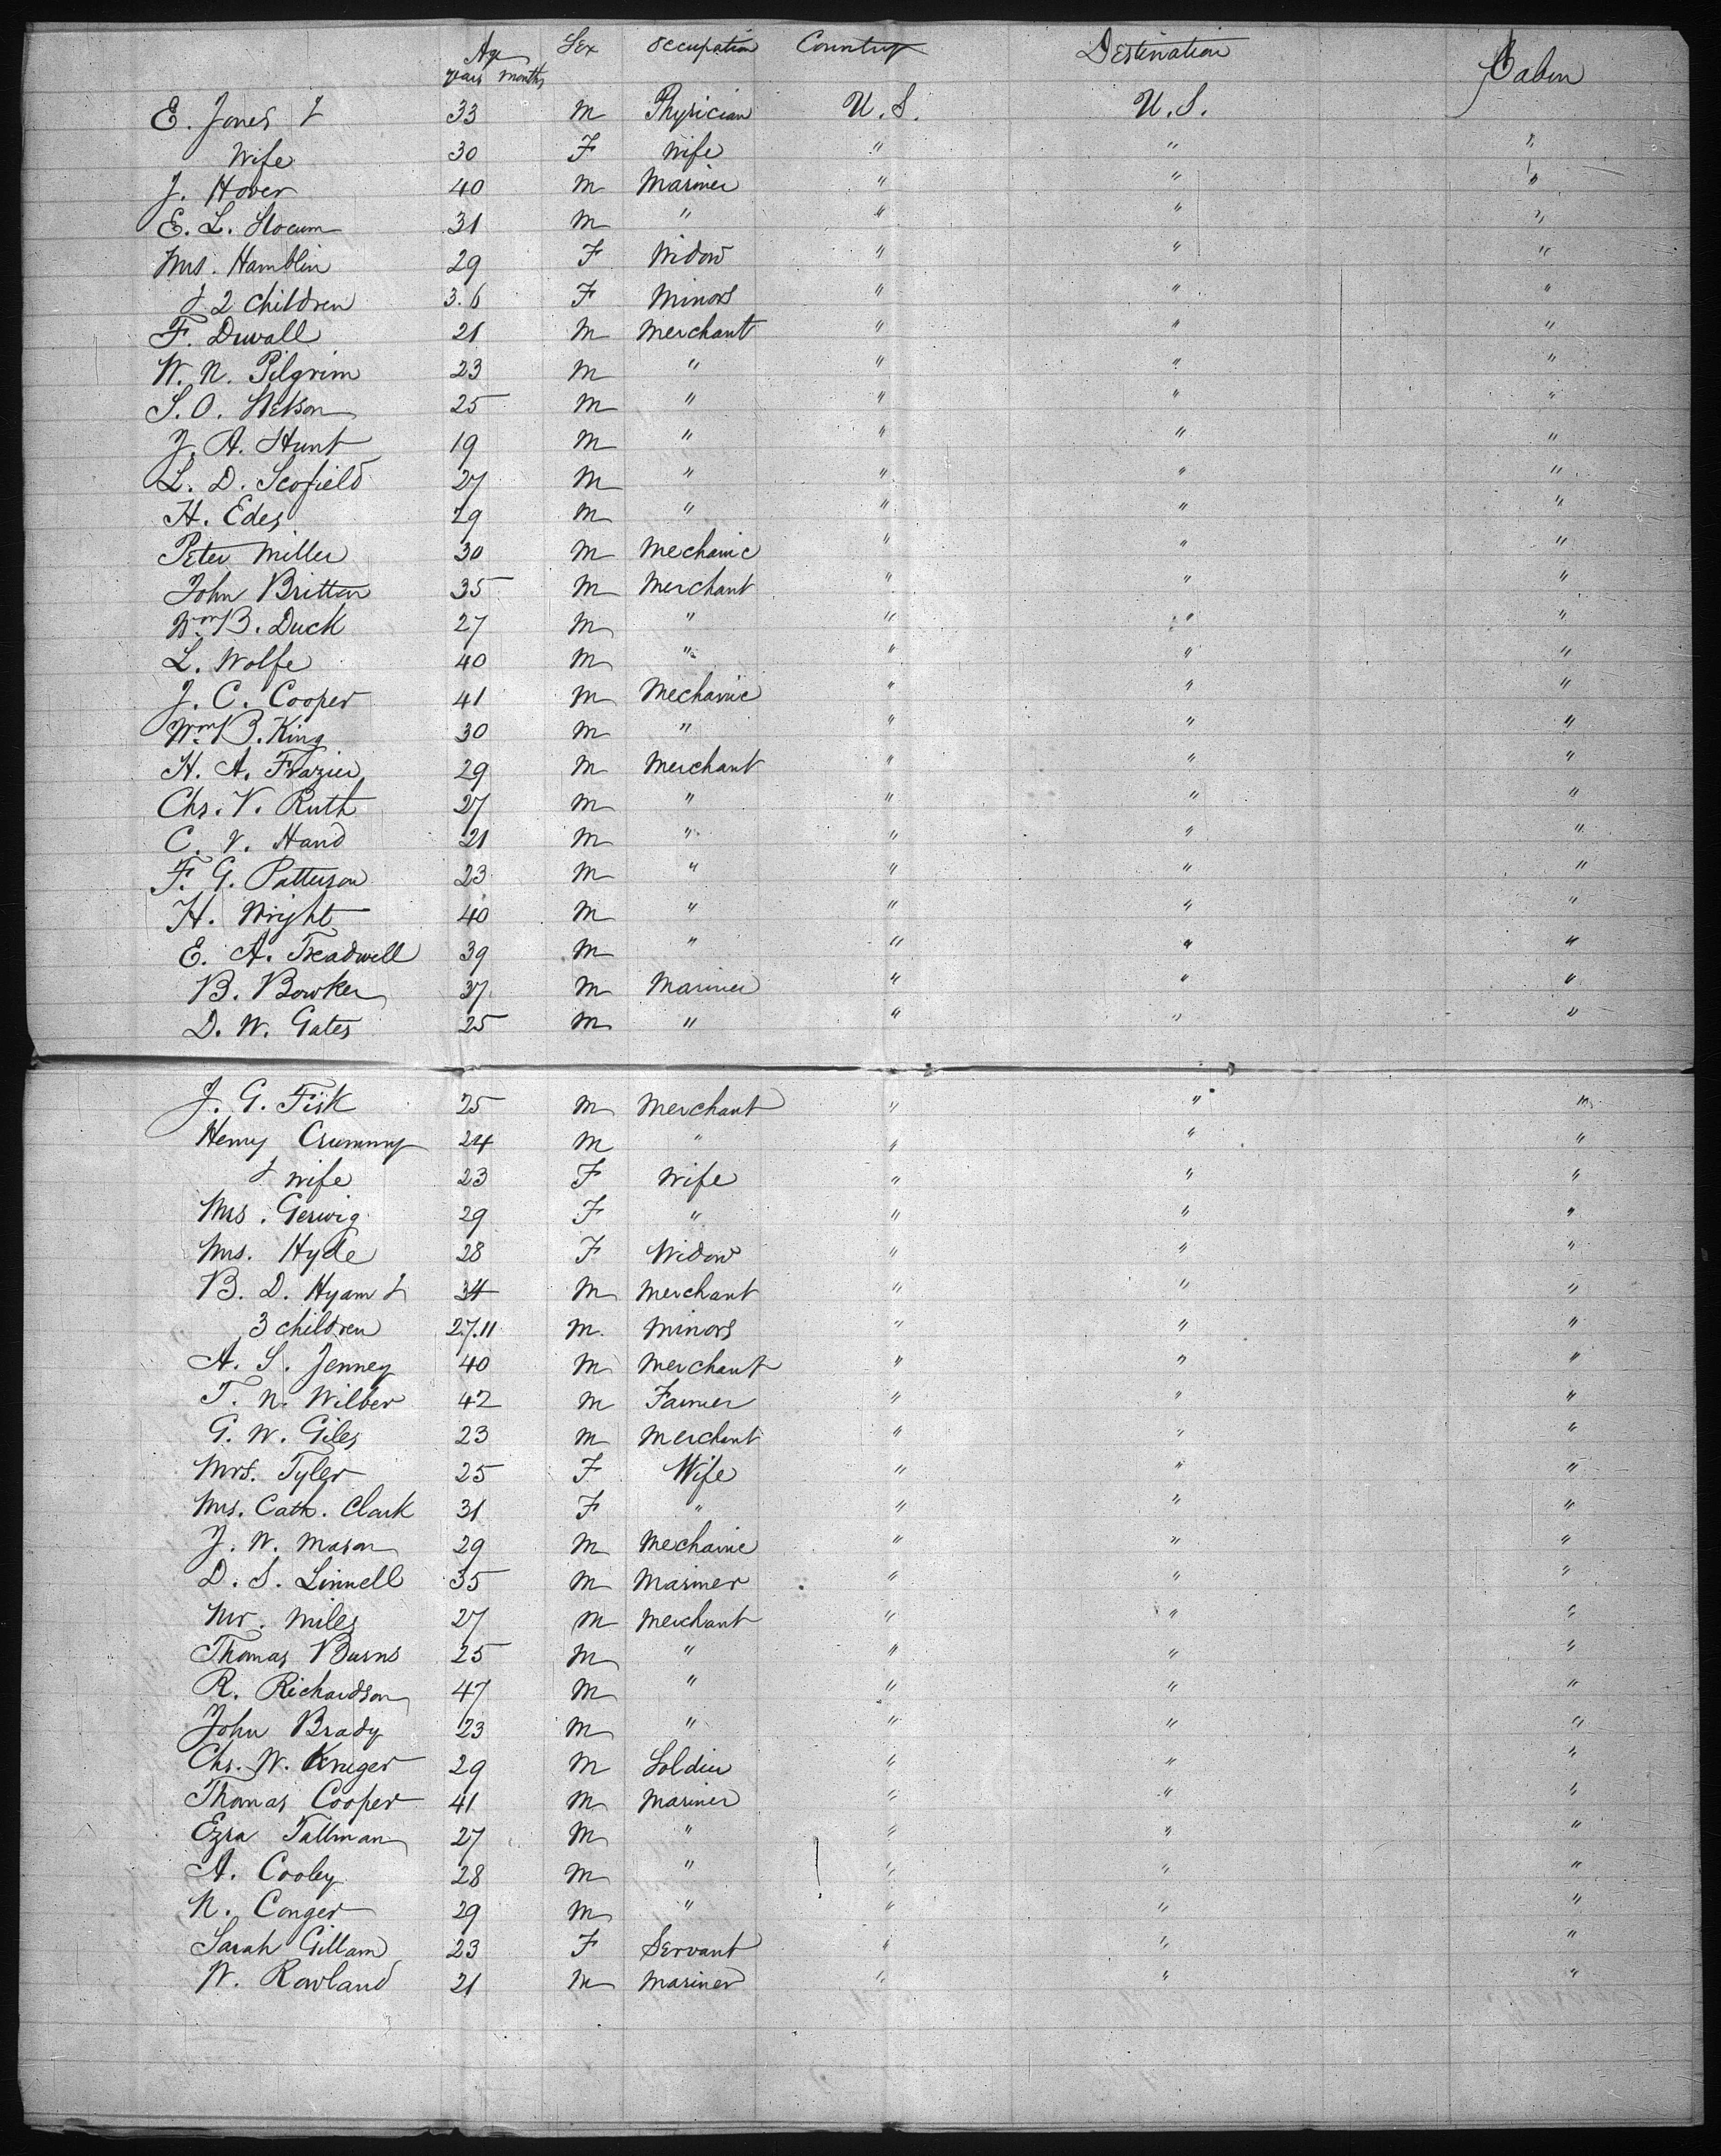 Age Sex Occupation Country Destination Cabin
years months
E. Jones & 33 M Physician U.S. U.S.
Wife 30 F Wife " " "
J. Hover 40 M Mariner " " "
E. L. Slocum 31 M " " " "
Mrs. Hamblin 29 F Widow " " "
& 2 children 3.6 F Minors " " "
F. Duvall 21 M Merchant " " "
W. N. Pilgrim 23 M " " " "
S. O. 25 M " " " "
J. A. Hunt 19 M " " " "
L. D. Scofield 27 M " " " "
H. Edes 29 M " " " "
Peter Miller 30 M Mechanic " " "
John Britton 35 M Merchant " " "
Wm B. Duck 27 M " " " "
L. Wolfe 40 M " " " "
J. C. Cooper 41 M Mechanic " " "
Wm B. King 30 M " " " "
H. A. Frazier 29 M Merchant " " "
Chs. V. Ruth 27 M " " " "
C. V. Hand 21 M " " " "
F. G. Patterson 23 M " " " "
H. Wright 40 M " " " "
E. A. Treadwell 39 M " " " "
B. Bowker 37 M Mariner " " "
D. W. Gates 25 M " " " "
J. G. Fisk 25 M Merchant " " "
Henry Crummy 24 M " " " "
& wife 23 F Wife " " "
Mrs. Gerwig 29 F " " " "
Mrs. Hyde 28 F Widow " " "
B. D. Hyam & 34 M Merchant " " "
3 children 2.7.11 M. Minors " " "
A. S. Jenney 40 M Merchant " " "
T. N. Wilber 42 M Farmer " " "
G. W. Giles 23 M Merchant " " "
Mrs. Tyler 25 F Wife " " "
Mrs. Cath. Clark 31 F " " " "
J. W. Mason 29 M Mechanic " " "
D. S. Linnell 35 M Mariner " " "
Mr. Miles 27 M Merchant " " "
Thomas Burns 25 M " " " "
R. Richardson 47 M " " " "
John Brady 23 M " " " "
Chs. W. Kruger 29 M Soldier " " "
Thomas Cooper 41 M Mariner " " "
Ezra Tallman 27 M " " " "
A. Cooley 28 M " " " "
N. Conger 29 M " " " "
Sarah Gillam 23 F Servant " " "
W. Rowland 21 M Mariner " " "